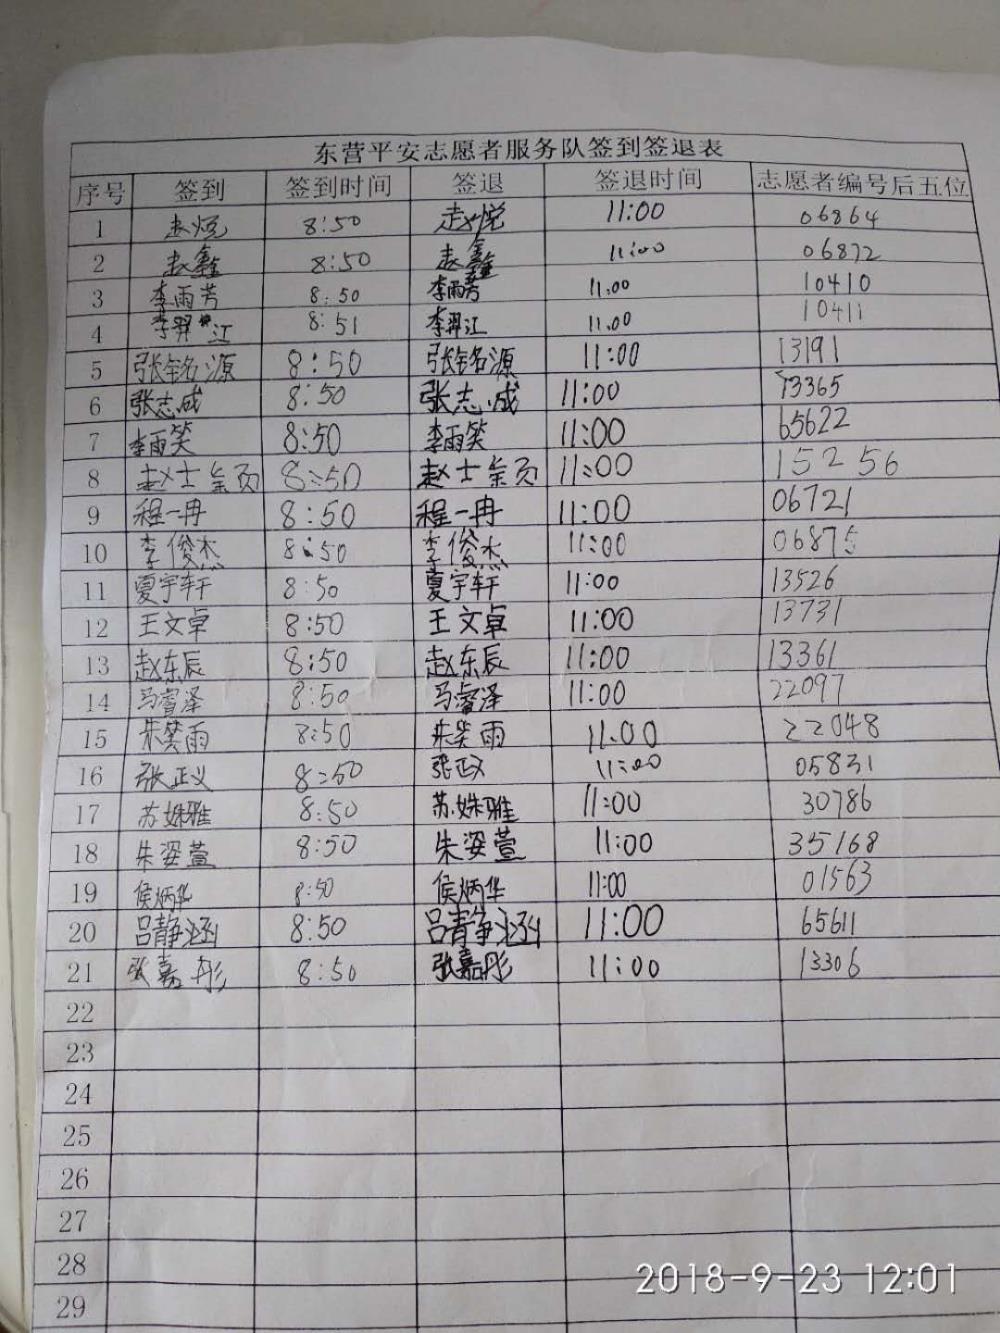 东营平安志愿者服务队签到签退表
序号 签到 签到时间 签退 签退时间 志愿者编号后五位
1 赵悦 8:50 赵悦 11:00 06864
2 赵鑫 8:50 赵鑫 11:00 06872
3 李雨芳 8:50 李雨芳 11:00 10410
4 李羿江 8:51 李羿江 11:00 10411
5 张铭源 8:50 张铭源 11:00 13191
6 张志成 8:50 张志成 11:00 13365
7 李雨笑 8:50 李雨笑 11:00 65622
8 赵士 8:50 赵士 11:00 15256
9 程一冉 8:50 程一冉 11:00 06721
10 李俊杰 8:50 李俊杰 11:00 06875
11 夏宇轩 8:50 夏宇轩 11:00 13526
12 王文卓 8:50 王文卓 11:00 13731
13 赵东辰 8:50 赵东辰 11:00 13361
14 马睿泽 8:50 马睿泽 11:00 22097
15 朱笑雨 8:50 朱笑雨 11:00 22048
16 张正义 8:50 张正义 11:00 05831
17 苏姝雅 8:50 苏姝雅 11:00 30786
18 朱姿萱 8:50 朱姿萱 11:00 35168
19 侯炳华 8:50 侯炳华 11:00 01563
20 吕静涵 8:50 吕静涵 11:00 65611
21 张嘉彤 8:50 张嘉彤 11:00 13306
22
23
24
25
26
27
28
29
2018-9-23 12:01